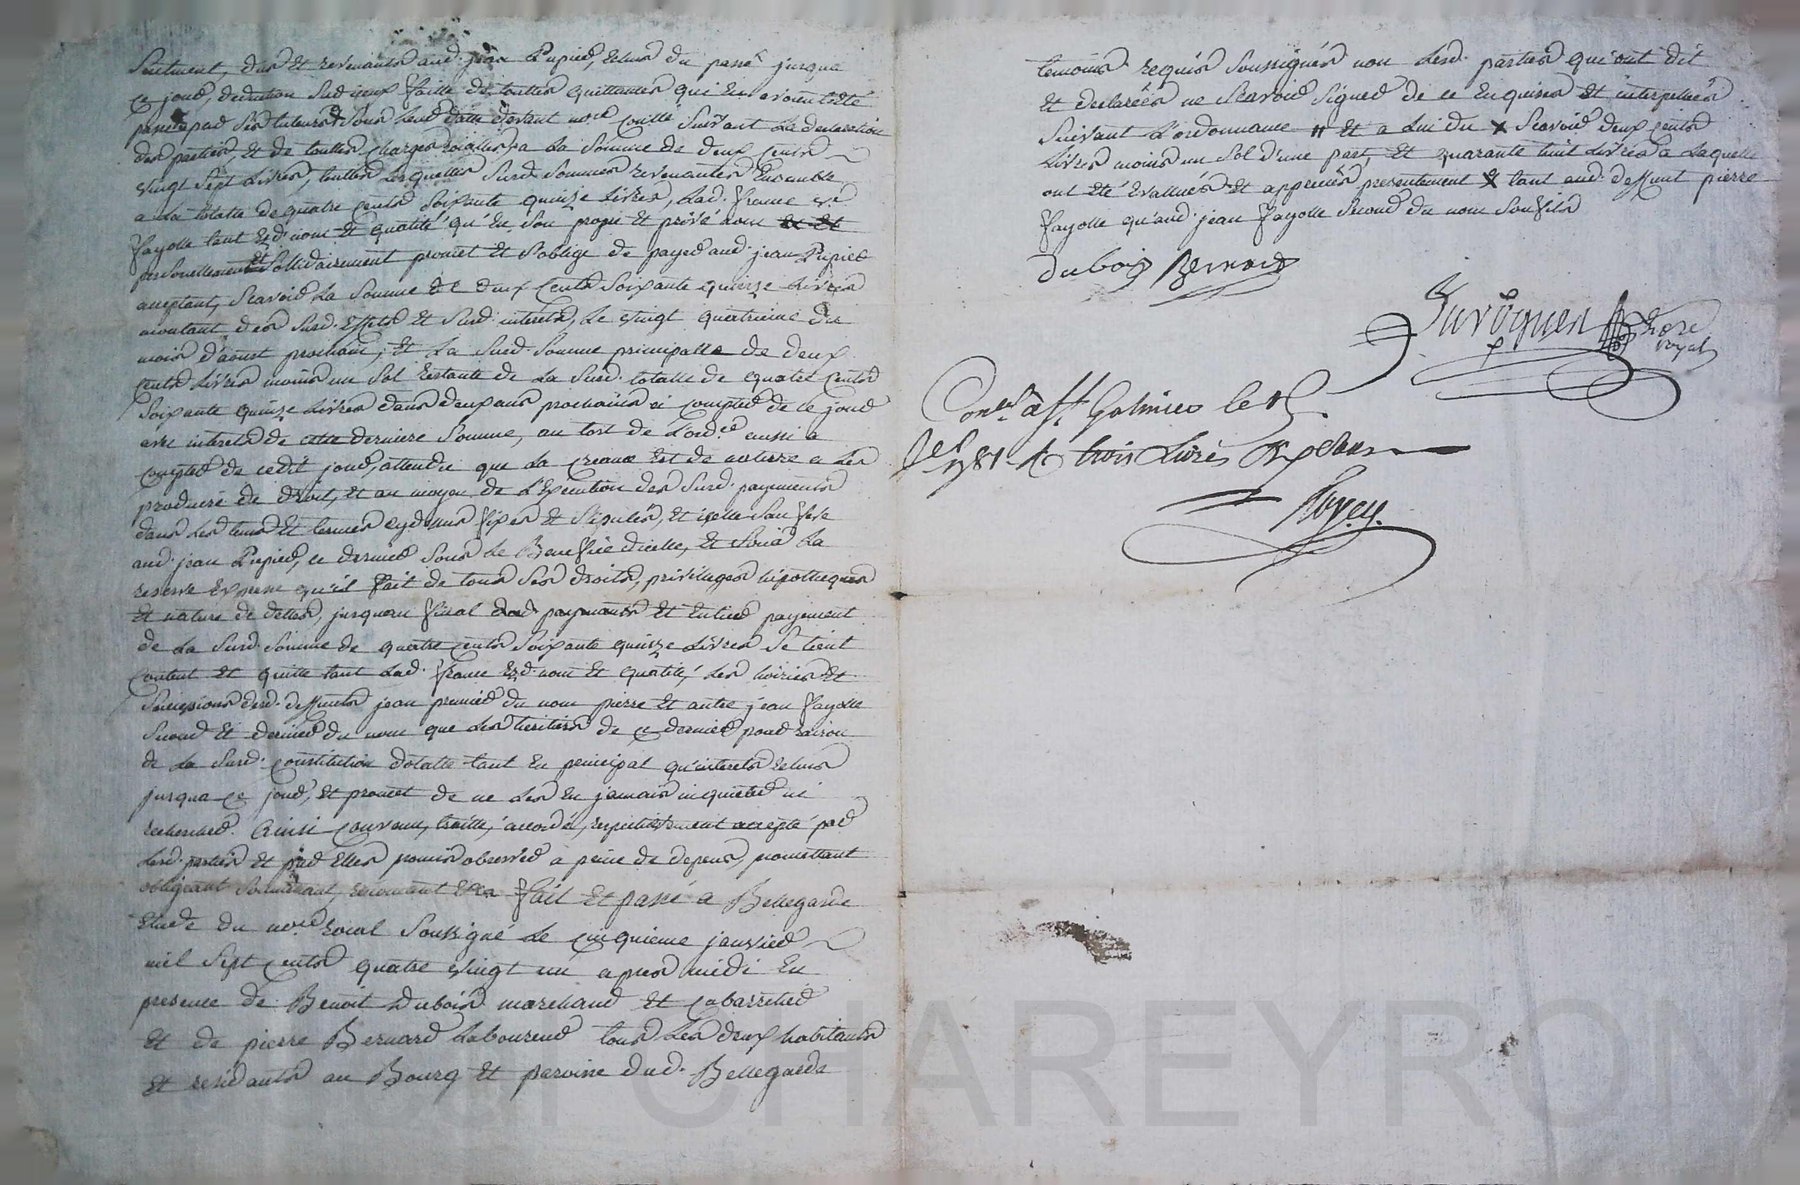 seulment, dus et revenants aud. jean Pupier, Echus du passé jusqua
ce jour, deduction sur iceux faitte de touttes quittances qui en avoient eté
passé par ses tuteurs sous leur datte devant no.re comme suivant la declaration
des parties, et de touttes charges Royalles a la somme de deux cents
vingt sept livres, touttes lesquelles susd. sommes revenantes Ensemble
a la totalle de quatre cents soixante quinze livres, lad. france
fayolle tant esd. nom et qualité qu'en son propre et privé nom
personellement et sollidairement promet et s'oblige de payer aud. jean Pupier
acceptant, scavoir la somme de deux cents soixante quinze livres
montant des susd. effets et susd. interets, le vingt quatrieme du
mois d'aoust prochain, et la susd. somme principalle de deux
cents livres moins un sol restante de la susd. totalle de quatre cents
soixante quinze livres dans deux ans prochains a compter de ce jour
avec interets de cette derniere somme, au tort de l'ord.ce aussi a
compter de cedit jour, attendu que la creance est de nature a les
produire de droit, et au moyen de l'Execution des susd. payements
dans les tems et termes cydessus fixés et stipulés, et icelle sauf
aud. jean Pupier, ce dernier sous le Benefice d'icelle, et sous la
reserve expresse qu'il fait de tous ses droits, privileges hipotheques
et nature de dettes, jusqu'au final payements et Entier payement
de la susd. somme de quatre cents soixante quinze livres se tient
content et quitte tant lad. france esd. nom et qualité, les hoiries et
successions desd. deffunts jean premier du nom pierre et autre jean fayolle
second et dernier du nom que les heritiers de ce dernier pour raison
de la susd. constitution dotalle tant en principal qu'interets echus
jusqua ce jour, et promet de ne les en jamais inquieter ni
rechercher. Ainsi convenu, traitté, accordé, respectivement accepté par
lesd. parties et par Elles promis observer a peine de depens, promettant
obligeant soumettant, renoncant et ca fait et passé a Bellegarde
Etude du no.re Royal soussigné le cinquieme janvier
mil sept cents quatre vingt un apres midi en
presence de Benoit Dubois marchand et cabarretier
et de pierre Bernard laboureur tous les deux habitants
et residants au Bourg et paroisse dud. Bellegarde
temoins requis soussignés non lesd. parties qui ont dit
et declarées ne scavoir signer de ce Enquises et interpellées
suivant l'ordonnance # et a lui du X scavoir deux cents
livres moins un sol d'une part, et quarante huit livres a laquelle
ont été evallués et appreciés presentement X tant aud. deffunt pierre
fayolle qu'aud. jean fayolle second du nom son fils
dubois Bernard
no.re
royal
Con.lé à St. Galmier le
1781 R. trois livres